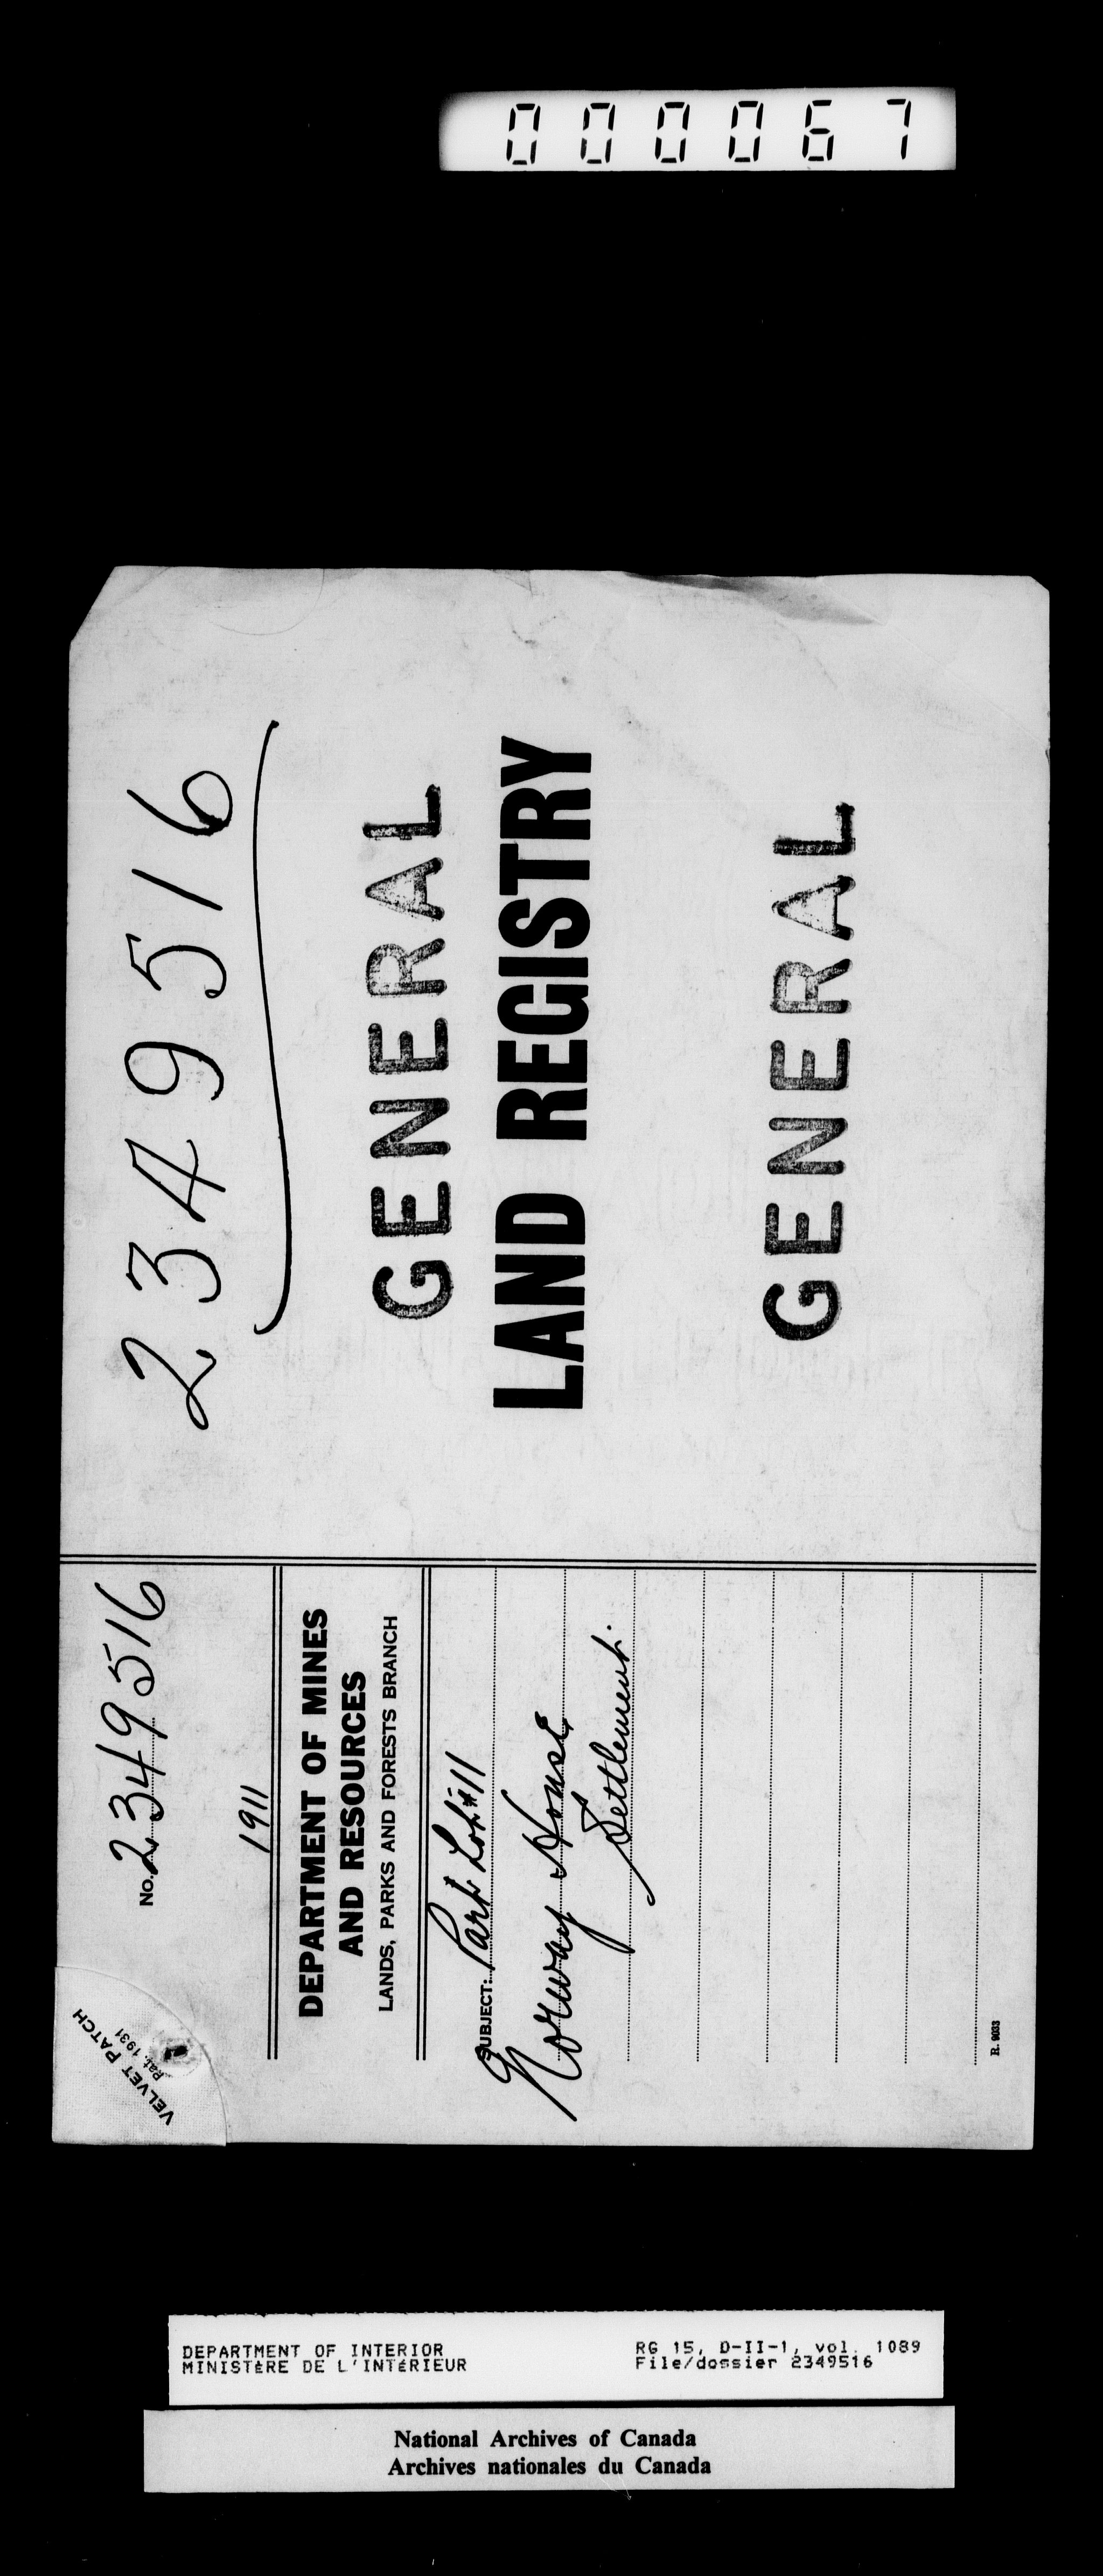 000067
2349516
GENERAL
LAND REGISTRY
GENERAL
No. 2349516
1911
DEPARTMENT OF MINES
AND RESOURCES
LANDS, PARKS AND FORESTS BRANCH
SUBJECT: Part Lot #11
Norway House
Settlement.
R. 9033
VELVET PATCH
Pat. 1931
DEPARTMENT OF INTERIOR
MINISTÈRE DE L'INTÉRIEUR
RG 15, D-II-1, vol. 1089
File/dossier 2349516
National Archives of Canada
Archives nationales du Canada